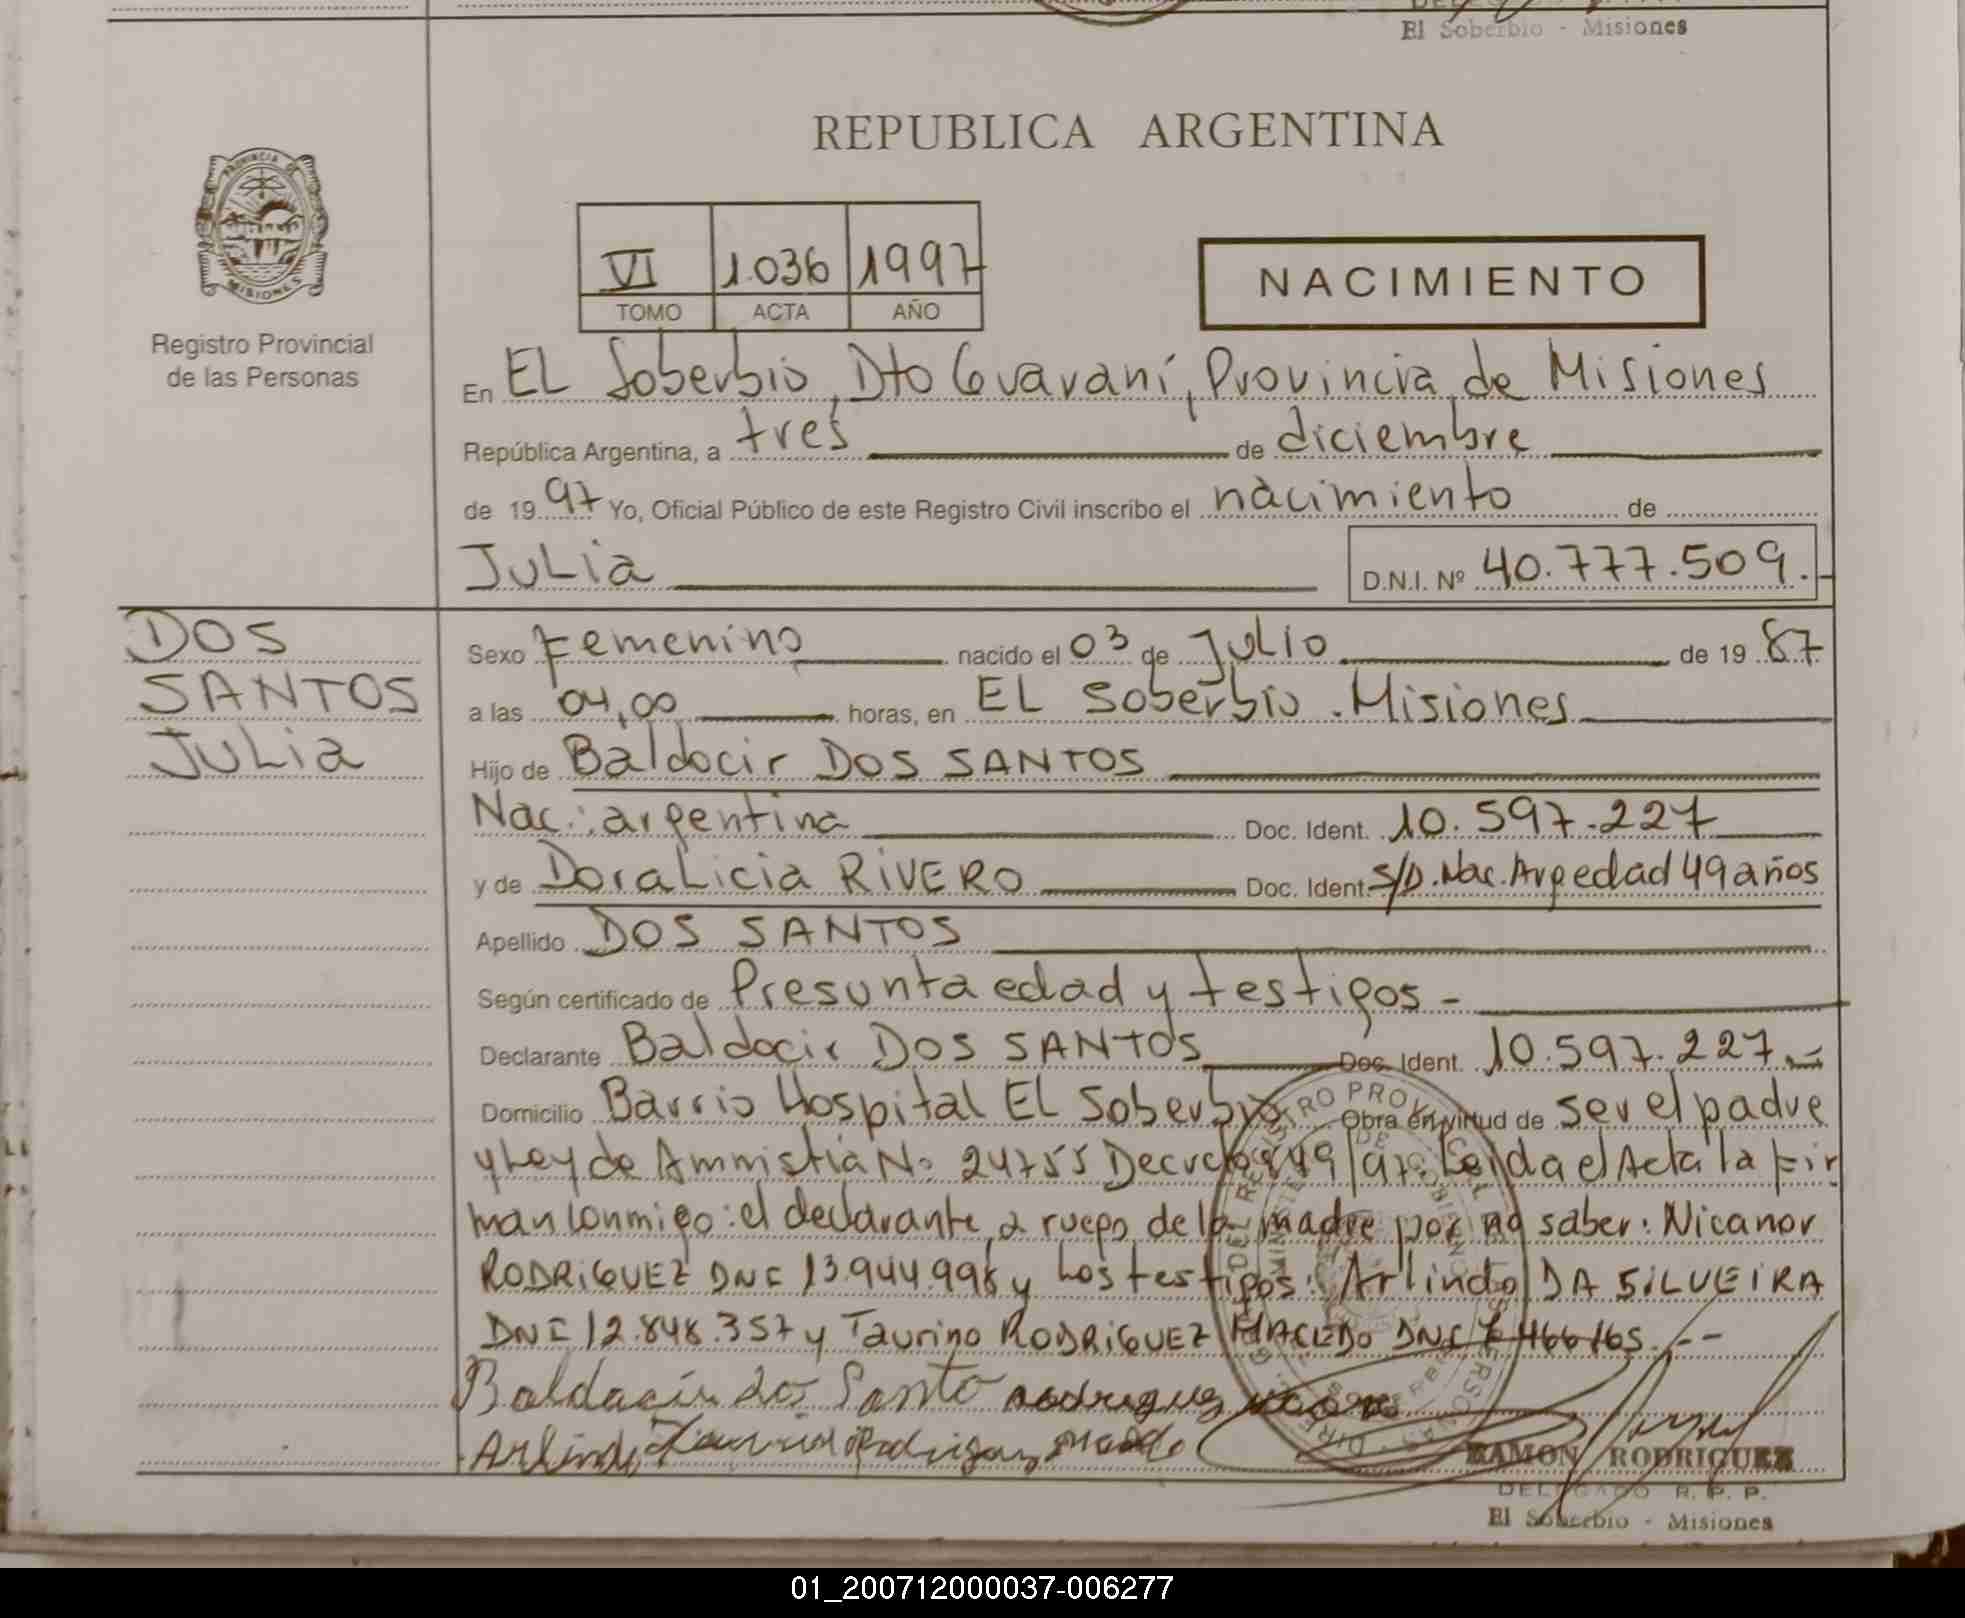 El Soberbio - Misiones
REPUBLICA ARGENTINA
PROVINCIA DE MISIONES
Registro Provincial
de las Personas
VI 1.036 1997
TOMO ACTA AÑO
NACIMIENTO
En EL Soberbio, Dto Guaraní, Provincia de Misiones
República Argentina, a tres de diciembre
de 1997 Yo, Oficial Público de este Registro Civil inscribo el nacimiento de
Julia D.N.I. Nº 40.777.509.-
DOS
SANTOS
Julia
Sexo Femenino nacido el 03 de Julio de 1987
a las 04,00 horas, en EL Soberbio . Misiones
Hijo de Baldocir DOS SANTOS
Nac: argentina Doc. Ident. 10.597.227
y de Doralicia RIVERO Doc. Ident. S/D. Nac. Arg edad 49 años
Apellido DOS SANTOS
Según certificado de Presunta edad y testigos -
Declarante Baldocir DOS SANTOS Doc. Ident. 10.597.227.-
Domicilio Barrio Hospital EL Soberbio Obra en virtud de ser el padre
y Ley de Amnistia No 24755 Decreto /97. Leida el Acta la Fir
man conmigo: el declarante, a ruego de la madre por no saber: Nicanor
RODRIGUEZ DNI 13.944.998 y Los testigos: Arlindo DA SILVEIRA
DNI 12.848.357 y Taurino RODRIGUEZ MACEDO DNI 7.466165.--
Baldacir dos Santo rodriguez
Arlindo Taurino Rodriguez
RAMON RODRIGUEZ
DELEGADO R. P. P.
El Soberbio - Misiones
01_200712000037-006277